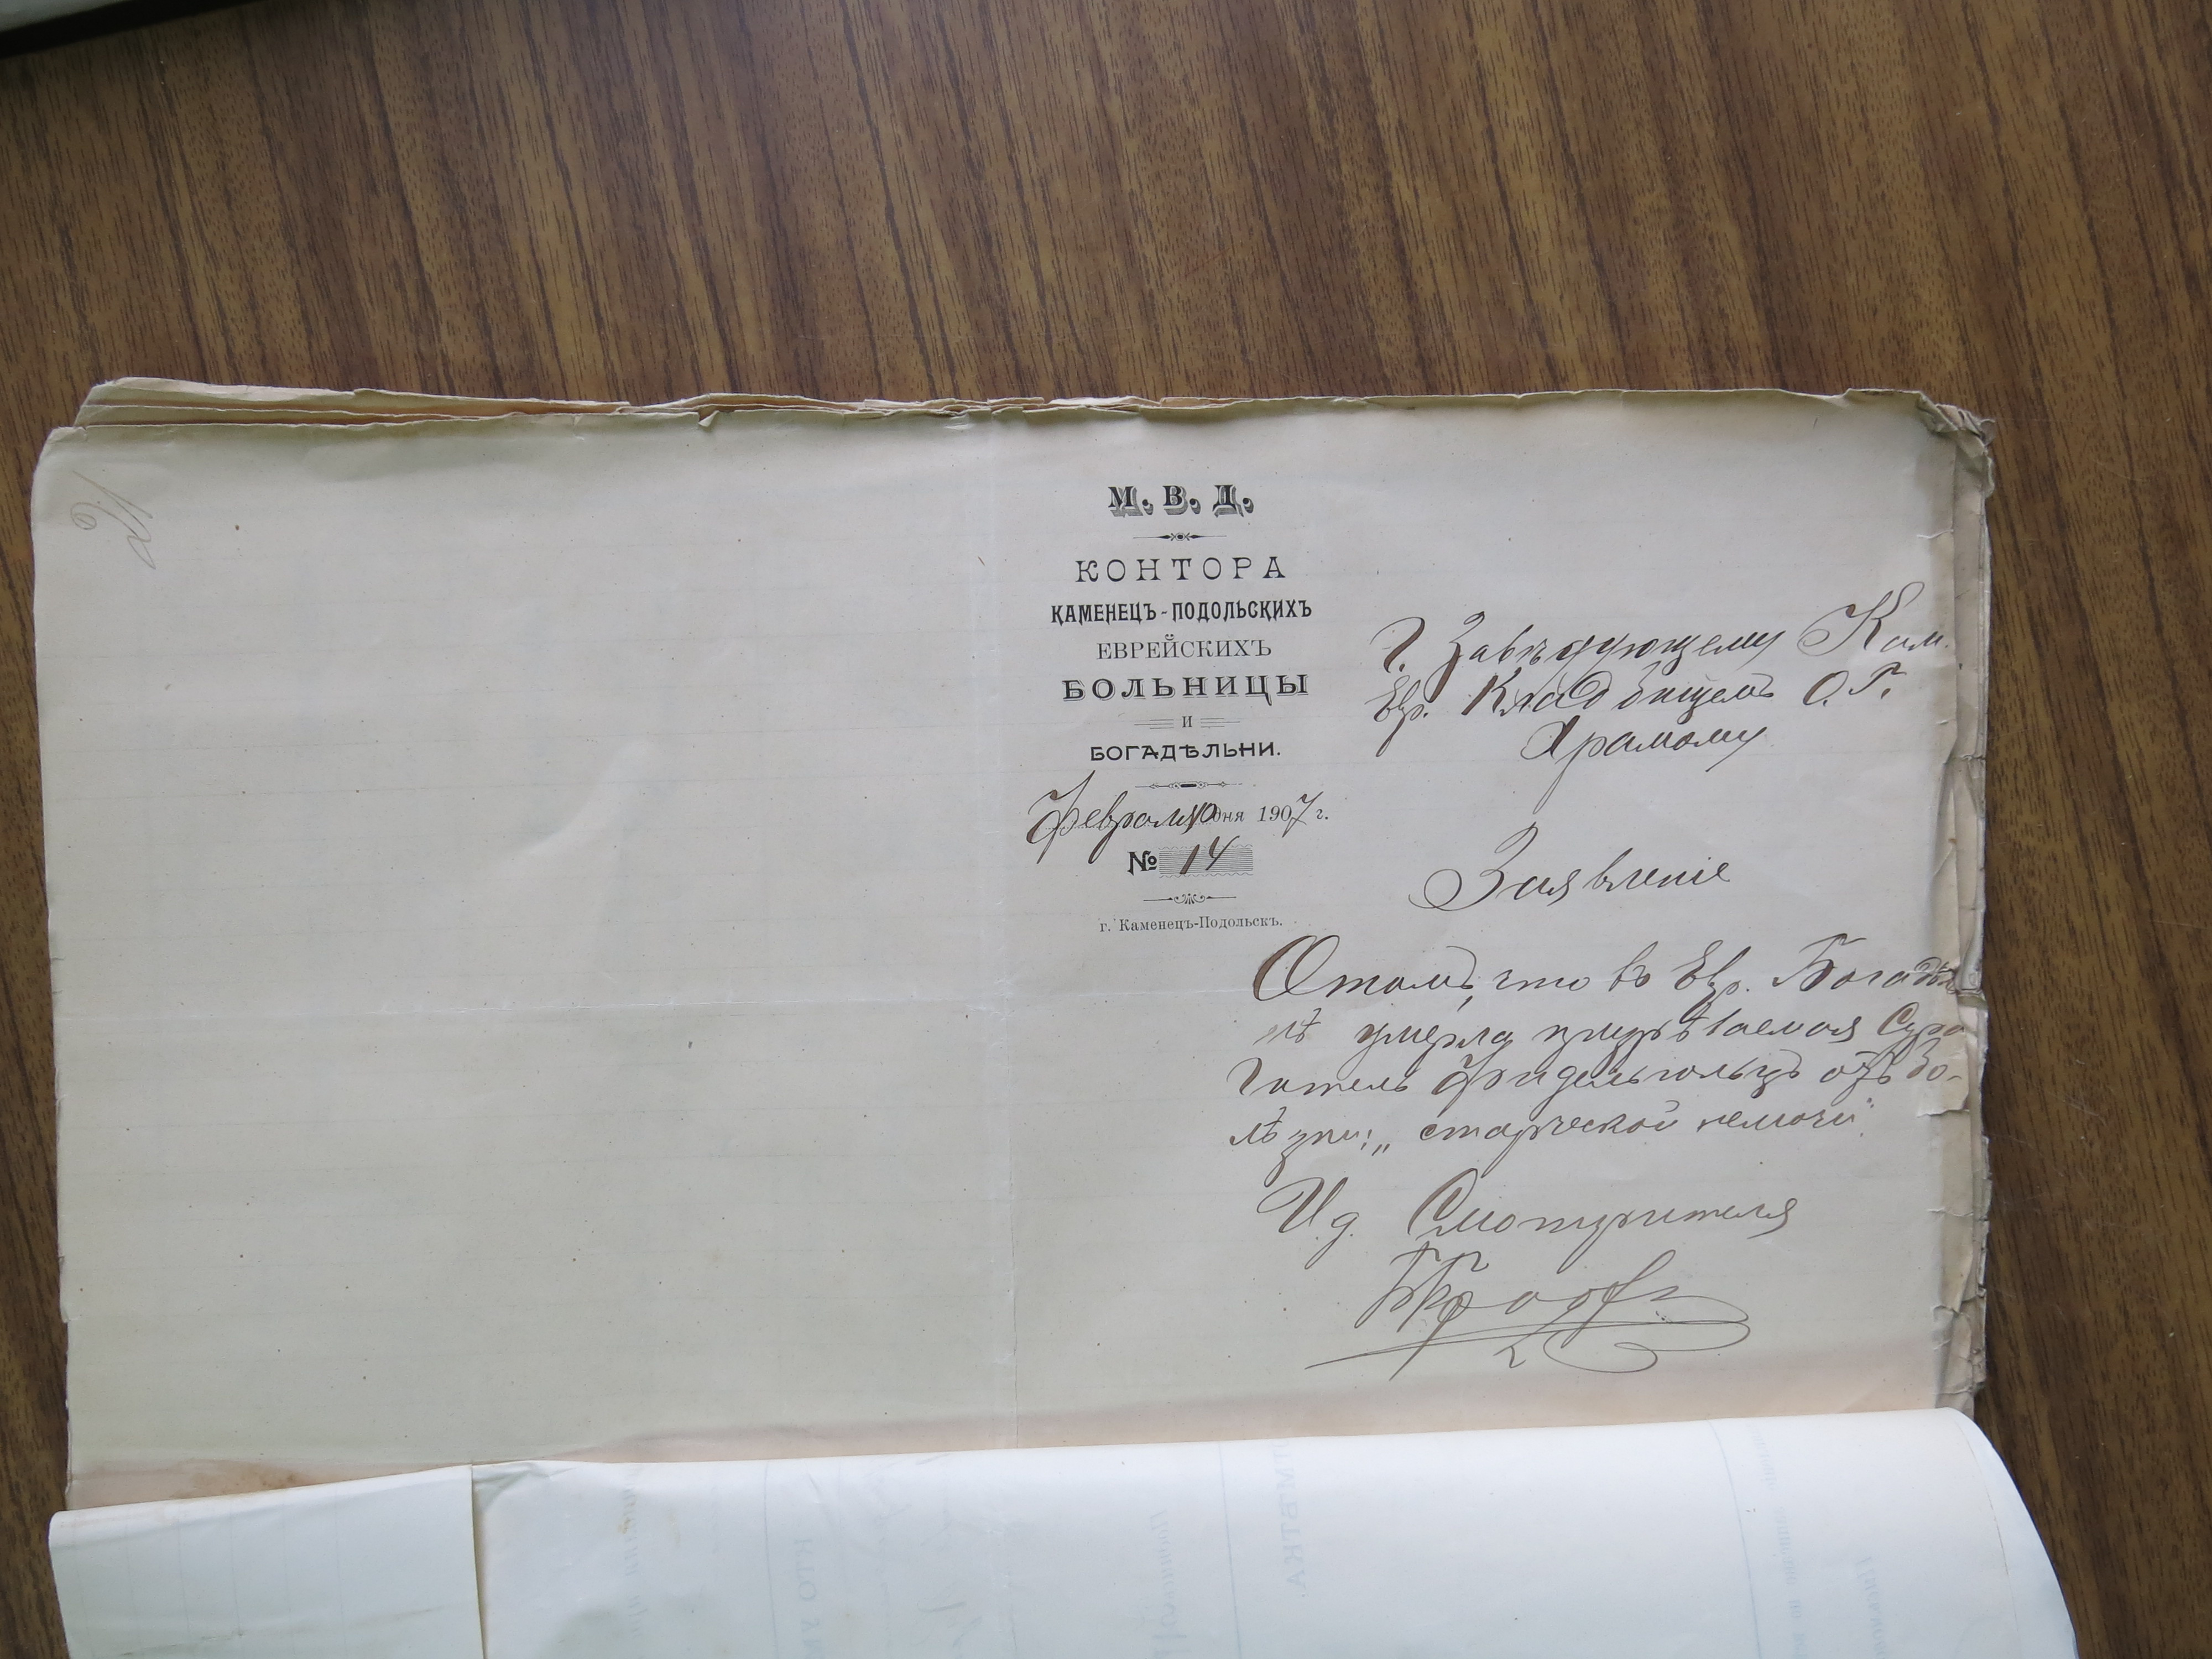 21
М. В. Д.
КОНТОРА
КАМЕНЕЦЪ-ПОДОЛЬСКИХЪ
ЕВРЕЙСКИХЪ
БОЛЬНИЦЫ
И
БОГАДѢЛЬНИ.
Февраля 10 дня 1907 г.
№ 14
г. Каменецъ-Подольскъ.
Г. Завѣдующему Кам.
Евр. Кладбищемъ О. Г.
Храмому
Заявленіе
О томъ, что въ Евр. Богадѣл
нѣ умерла призрѣваемая Сура
Гитель Фидельгольцъ отъ бо-
лѣзни: „старческой немочи".
И. д. Смотрителя